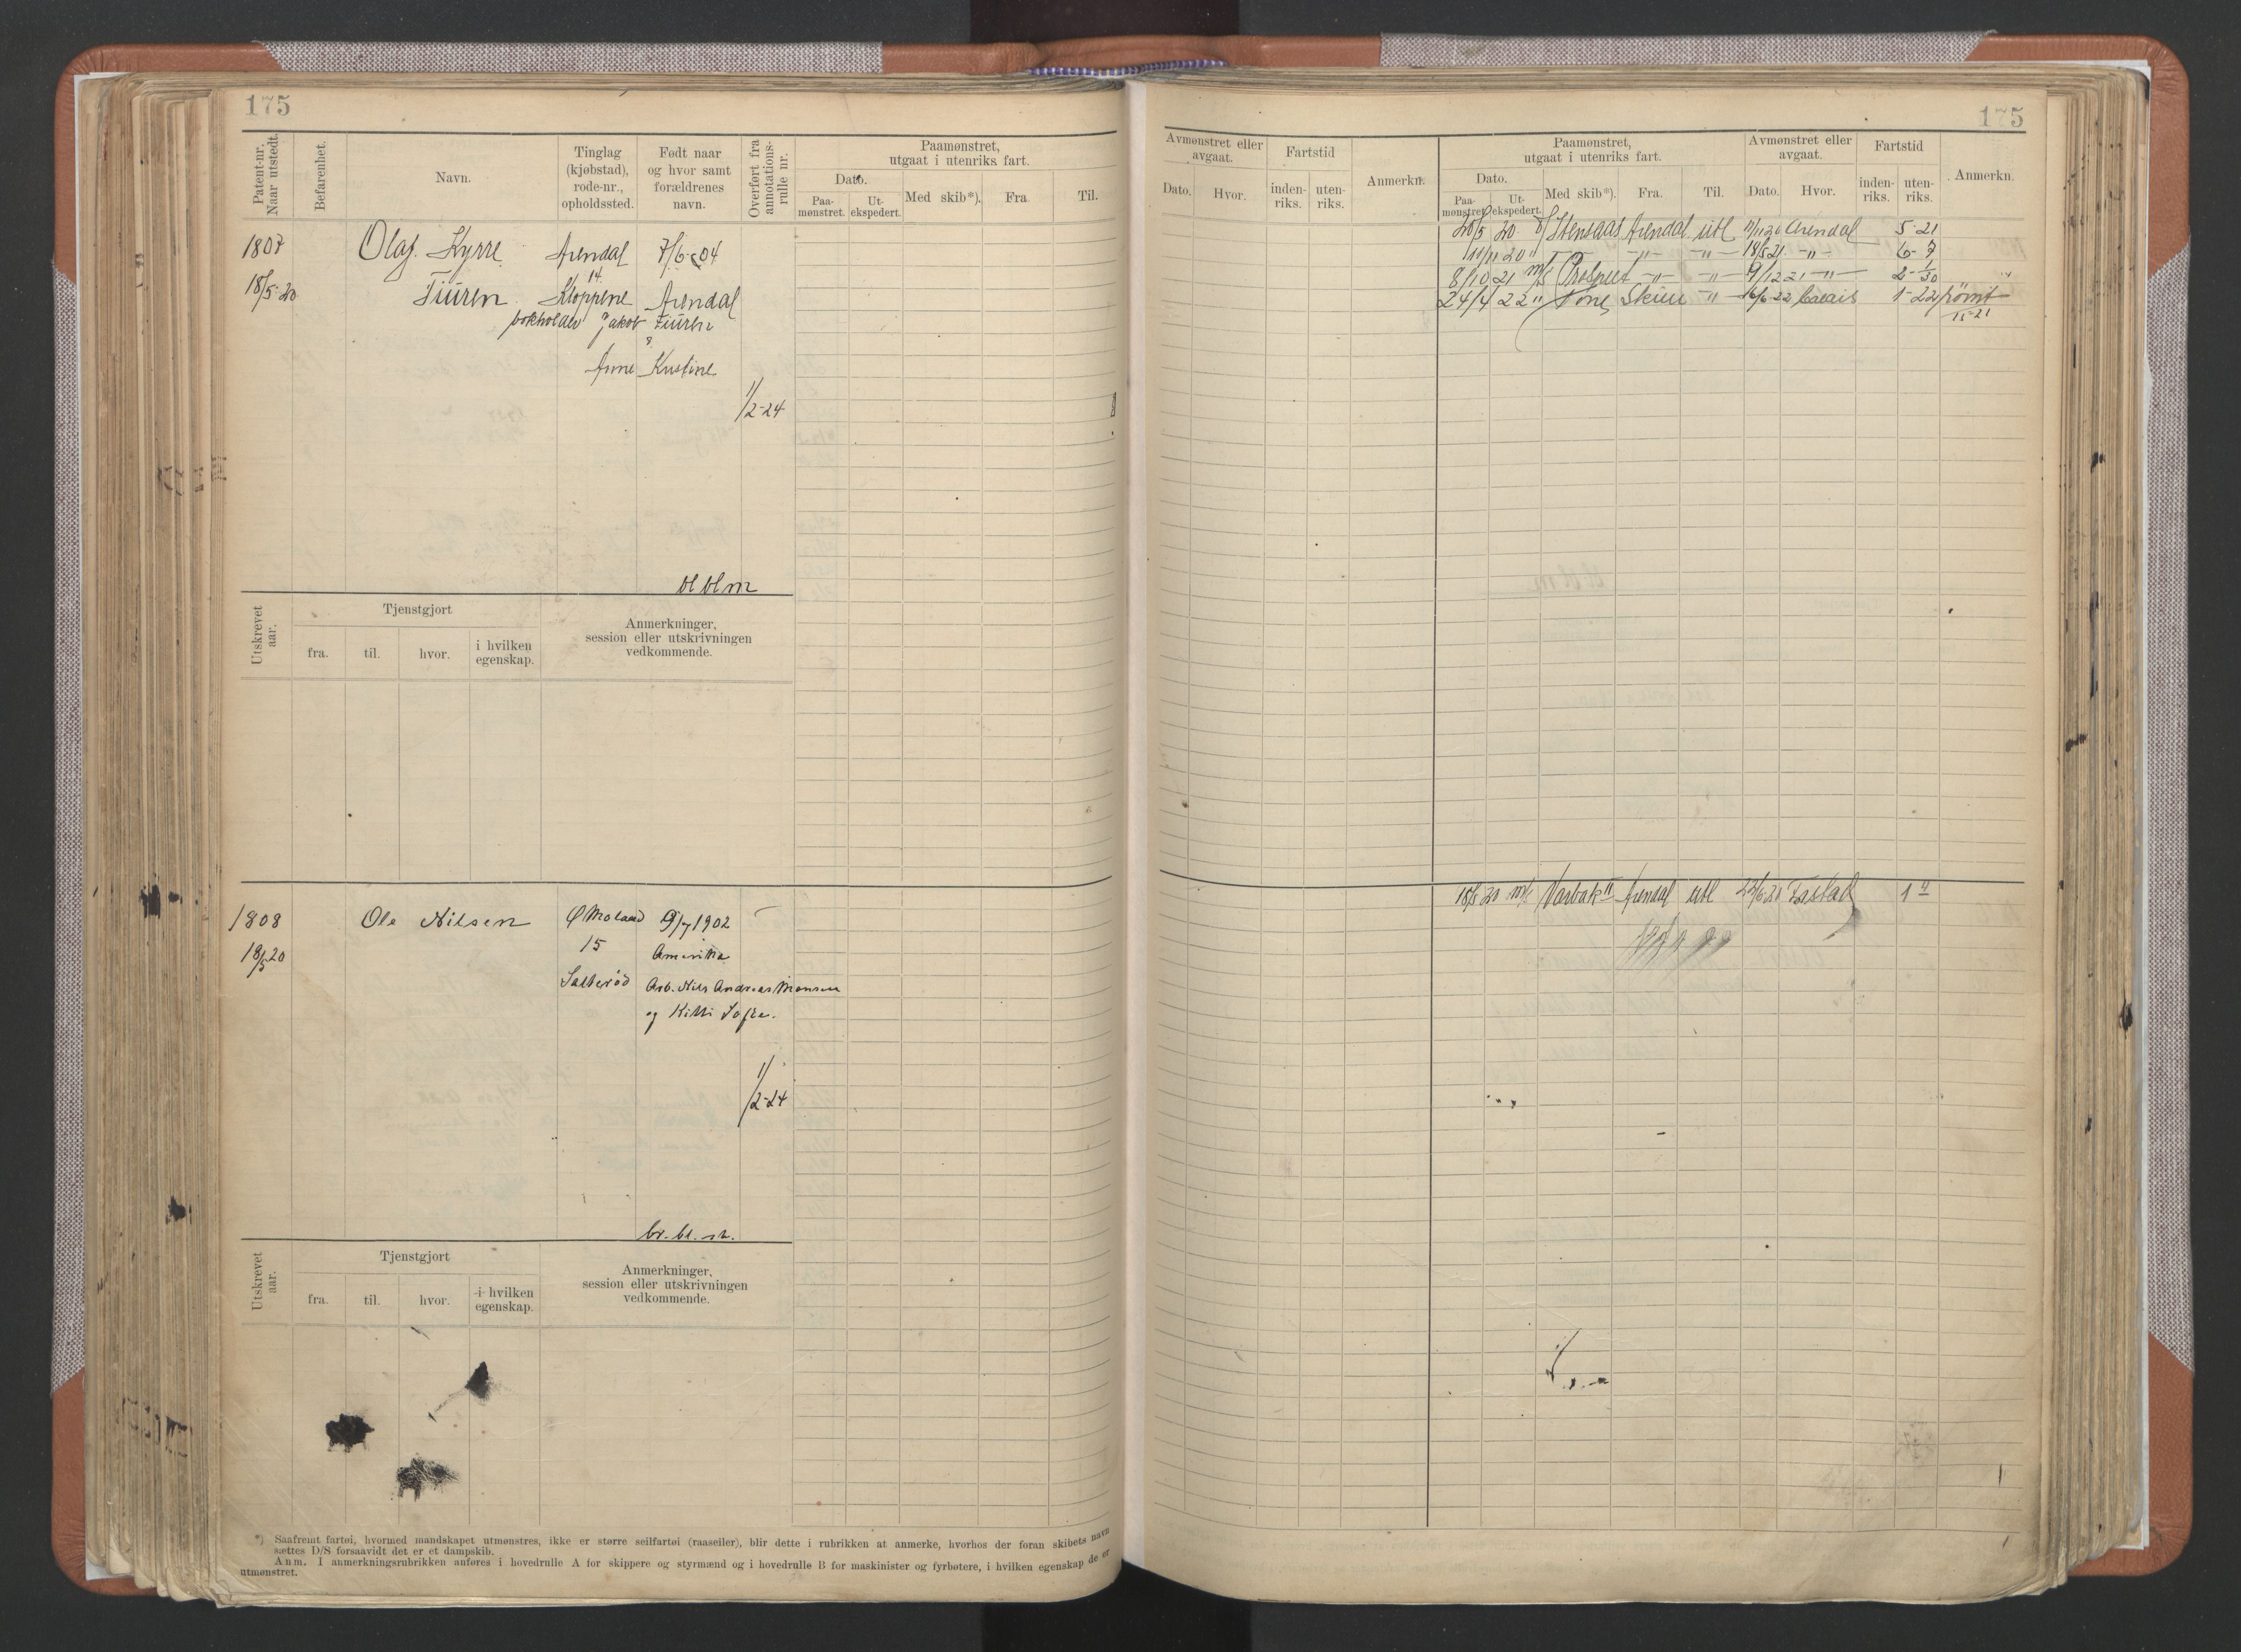 175
Patent-nr. Naar utstedt.
Befarenhet.
Navn.
Tinglag (kjøbstad), rode-nr., opholdssted.
Født naar og hvor samt forældrenes navn.
Overført fra annotations-rulle nr.
Paamønstret, utgaat i utenriks fart.
Dato.
Paa-mønstret.
Ut-ekspedert.
Med skib*).
Fra.
Til.
1807
Olaf Kyrre
Arendal
7/6-04
18/5-20
Fiüren
14
Kloppene
Arendal
bokholder Jakob Fiüren
Anne Kristine
1/2-24
bl blm
Utskrevet aar.
Tjenstgjort
fra.
til.
hvor.
i hvilken egenskap.
Anmerkninger, session eller utskrivningen vedkommende.
1808
Ole Nilsen
Ø Moland
9/7 1902
18/5 20
15
Amerika
Salterød
Arb. Nils Andreas Monsen
og Kitti Sofie.
1/2-24
br. bl. m.
Utskrevet aar.
Tjenstgjort
fra.
til.
hvor.
i hvilken egenskap.
Anmerkninger, session eller utskrivningen vedkommende.
*) Saafremt fartøi, hvormed mandskapet utmønstres, ikke er større seilfartøi (raaseiler), blir dette i rubrikken at anmerke, hvorhos der foran skibets navn
sættes D/S forsaavidt det er et dampskib.
Anm. I anmerkningsrubrikken anføres i hovedrulle A for skippere og styrmænd og i hovedrulle B for maskinister og fyrbøtere, i hvilken egenskap de er
utmønstret.
175
Avmønstret eller avgaat.
Dato.
Hvor.
Fartstid
inden-riks.
uten-riks.
Anmerkn.
Paamønstret, utgaat i utenriks fart.
Dato.
Paa-mønstret
Ut-ekspedert.
Med skib*).
Fra.
Til.
Avmønstret eller avgaat.
Dato.
Hvor.
Fartstid
inden-riks.
uten-riks.
Anmerkn.
20/5 20 Stensaas Arendal utl 11/11 20 Arendal 5-21
11/11 20 " -"- -"- 18/5 21 -"- 6-7
8/10 21 m/s Prospect -"- -"- 9/12 21 -"- 2-1/30
24/4 22 " Skien -"- 16/6-22 Calais 1-22 rømt
15-21
18/5 20 m/s Varbak II Arendal utl 22/6 20 1